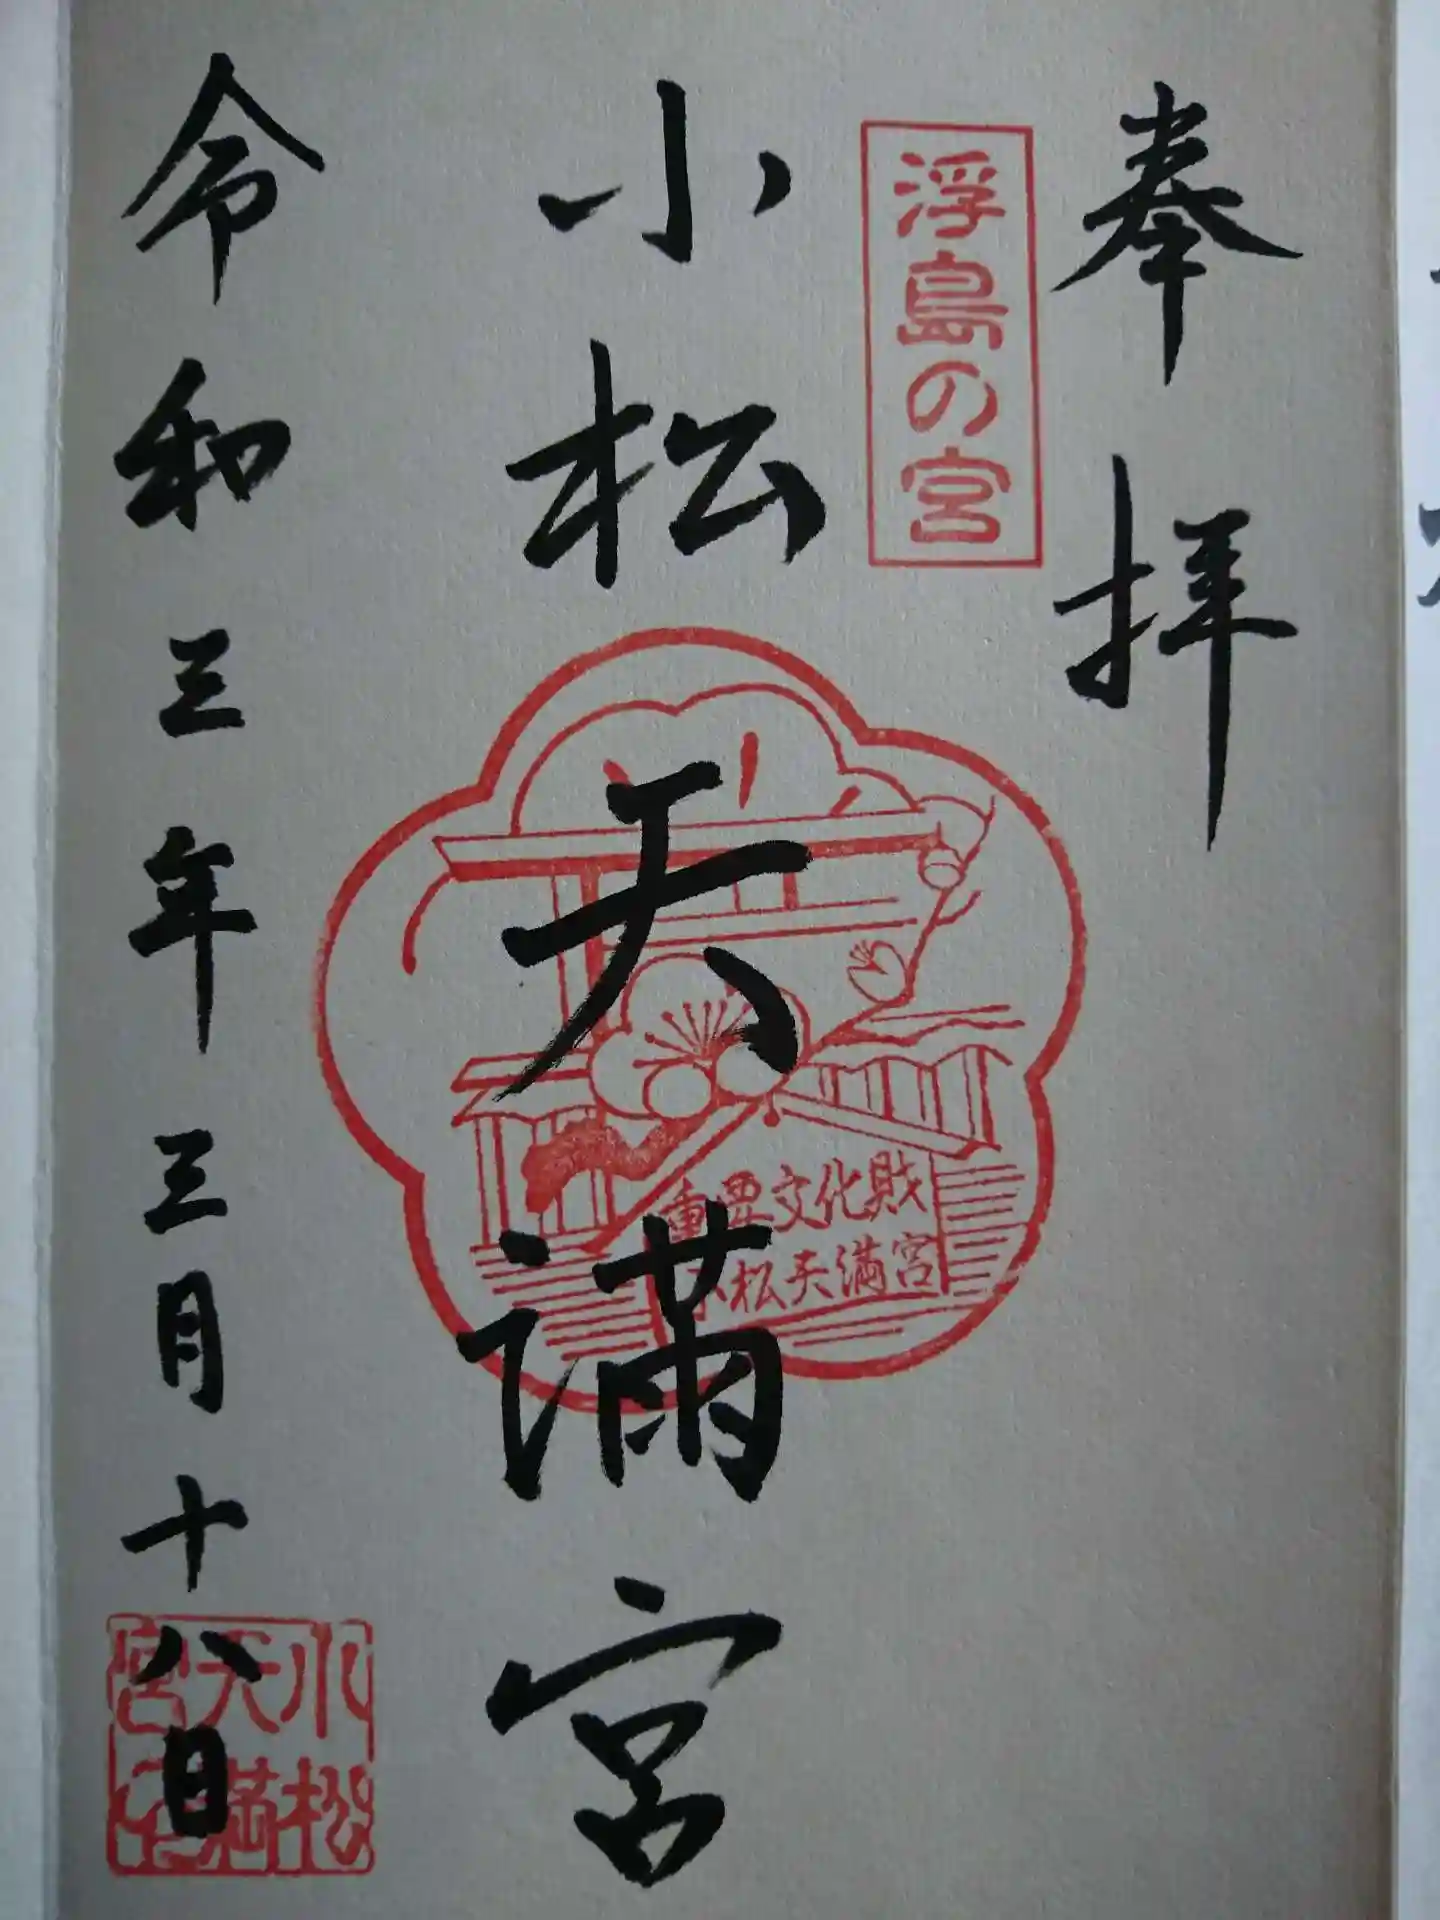 奉拝
浮島の宮
小松天満宮
重要文化財
小松天満宮
令和三年三月十八日
小松
天満
宮